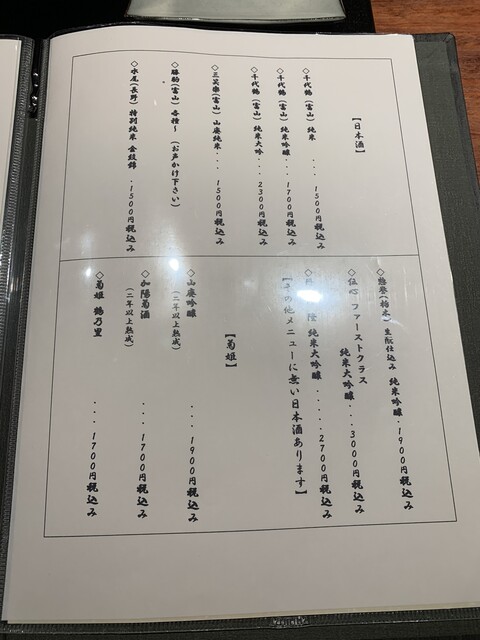 【日本酒】
◇千代鶴(富山) 純米 ・・・・1500円税込み
◇千代鶴(富山) 純米吟醸・・・1700円税込み
◇千代鶴(富山) 純米大吟・・・2300円税込み
◇三笑樂(富山) 山廃純米・・・1500円税込み
◇勝駒(富山) 各種〜 (お声かけ下さい)
◇水尾(長野) 特別純米 金紋錦 ・1500円税込み
◇惣誉(栃木) 生酛仕込み 純米吟醸・1900円税込み
◇伝心 ファーストクラス
純米大吟醸・・・3000円税込み
隆 純米大吟醸・・・・・2700円税込み
【その他メニューに無い日本酒あります】
【菊姫】
◇山廃吟醸 ・・・1900円税込み
(二年以上熟成)
◇加陽菊酒 ・・・1700円税込み
(二年以上熟成)
◇菊姫 鶴乃里 ・・・1700円税込み